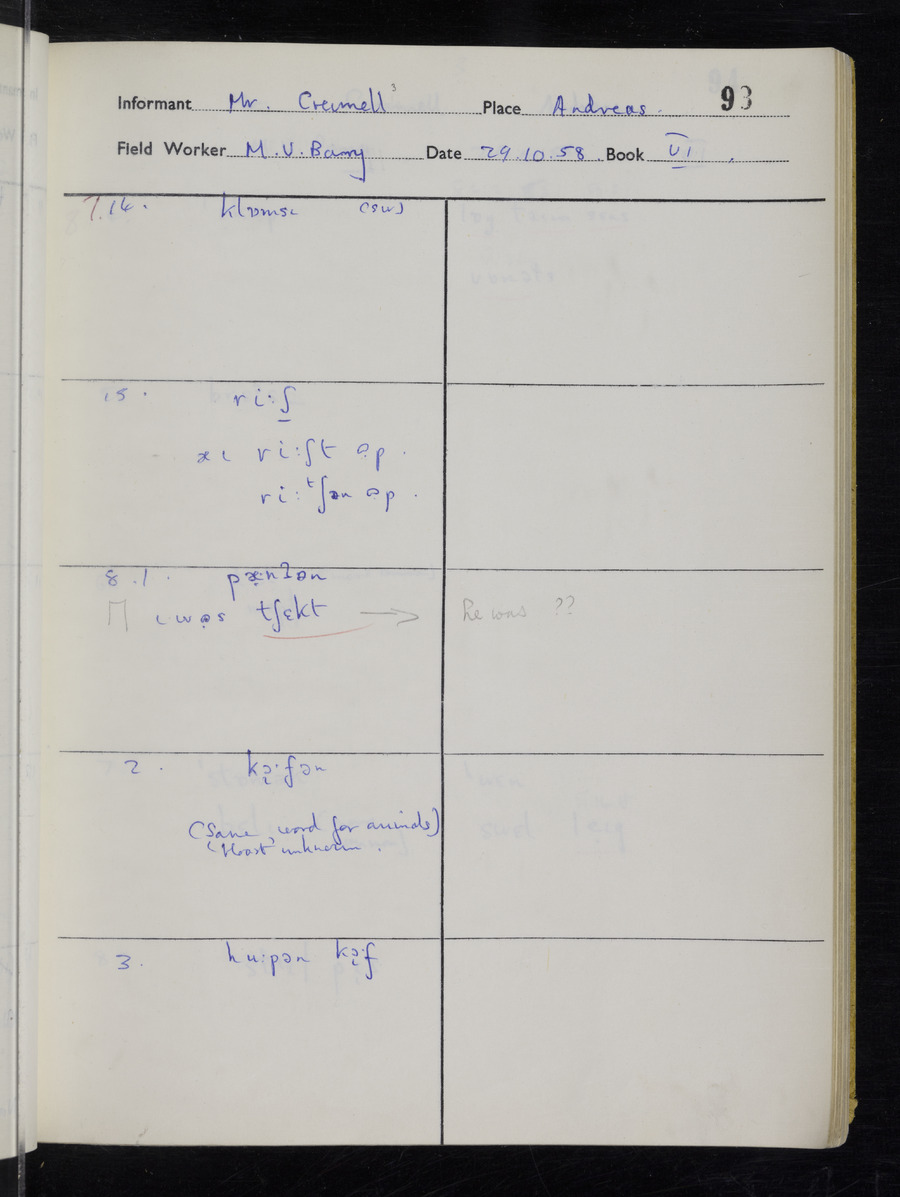 Informant Mr. Crennell³ Place Andreas. 93
Field Worker M.V. Barry Date 29.10.58. Book VI
7.14. klɒmsɩ (sw)
15. ri:ʃ
æɩ ri:ʃt əp.
ri:ᵗʃən əp.
8.1. pæ:nʔən
ɩ wəs tʃɛkt → he was ??
2. kə̣ɩ·fən
(Same word for animals)
'Hoast' unknown.
3. hu:pən kə̣ɩ·f